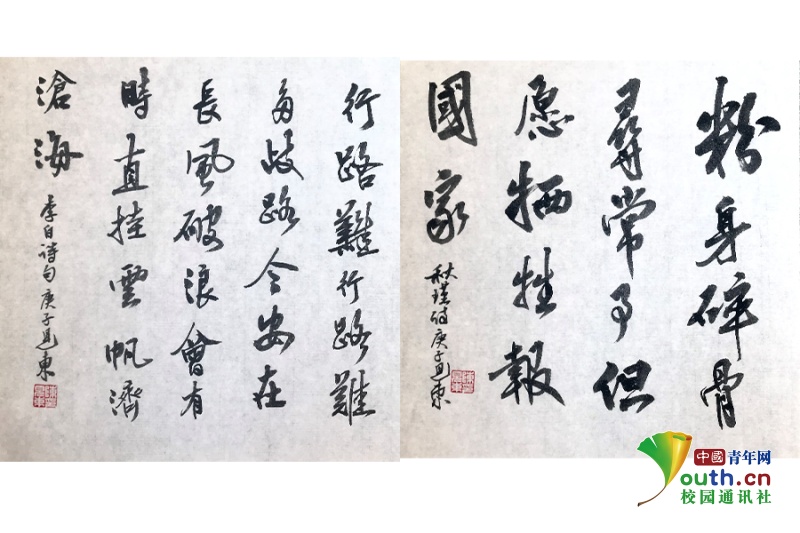 行路難行路難
多歧路今安在
長風破浪會有
時直挂雲帆濟
滄海
李白詩句庚子東
粉身碎骨
尋常事但
愿牺牲報
國家
秋瑾詩庚子東
中國青年网
youth.cn
校园通讯社